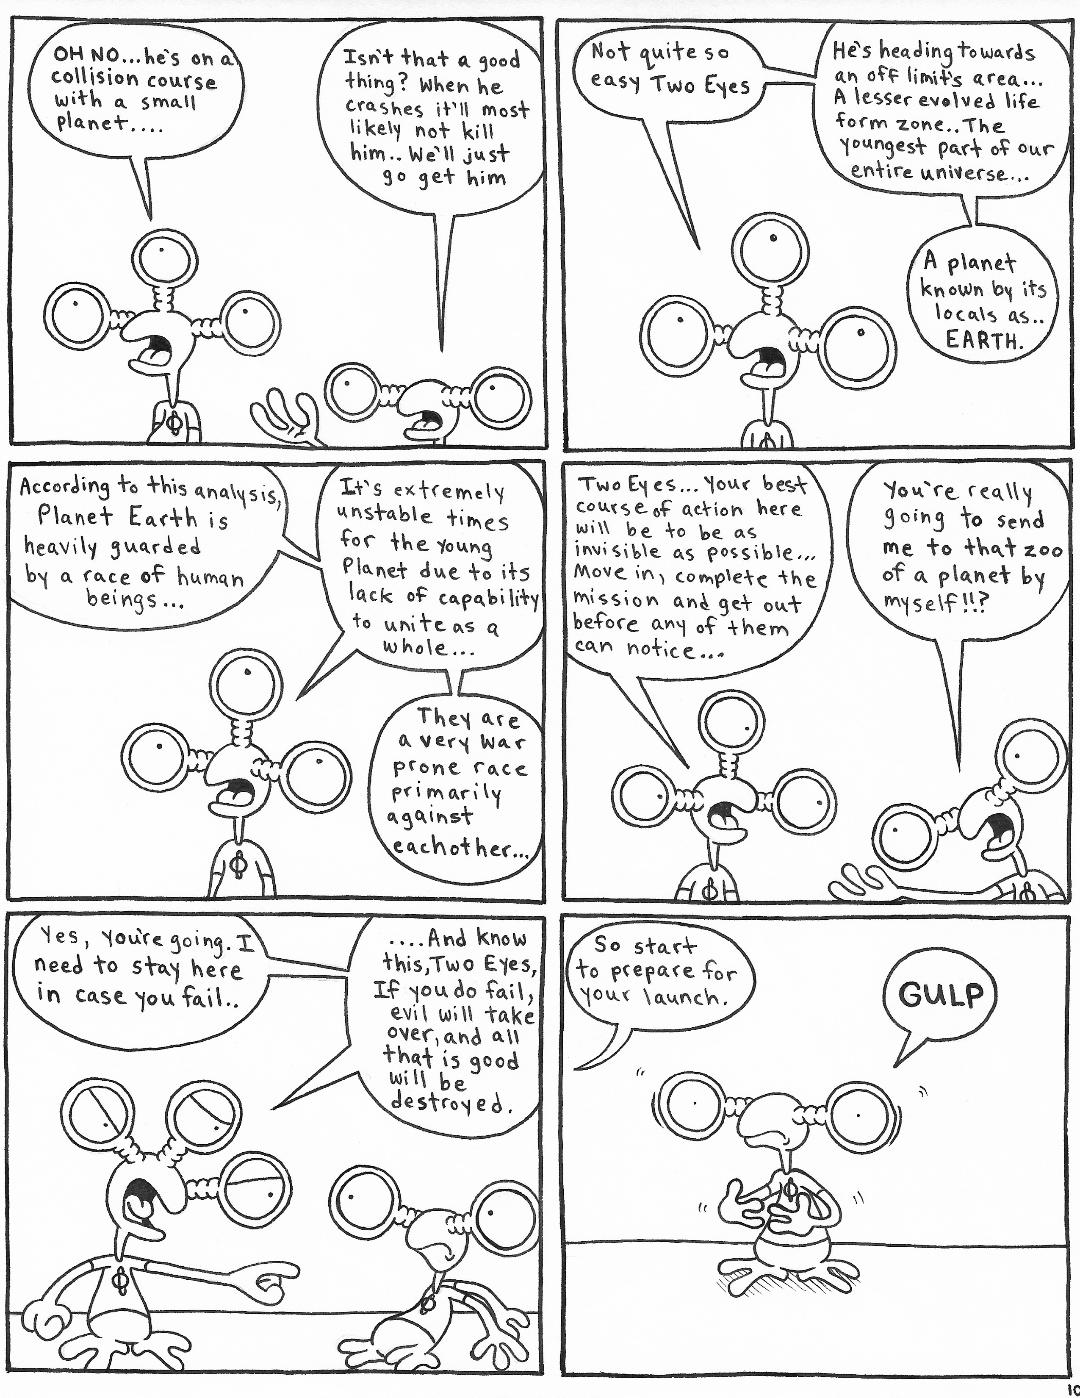 OH NO...he's on a
collision course
with a small
planet....
Isn't that a good
thing? When he
crashes it'll most
likely not kill
him.. We'll just
go get him
Not quite so
easy Two Eyes
He's heading towards
an off limit's area...
A lesser evolved life
form zone..The
youngest part of our
entire universe...
A planet
known by its
locals as..
EARTH.
According to this analysis,
Planet Earth is
heavily guarded
by a race of human
beings...
It's extremely
unstable times
for the young
Planet due to its
lack of capability
to unite as a
whole...
They are
a very war
prone race
primarily
against
eachother...
Two Eyes... Your best
course of action here
will be to be as
invisible as possible...
Move in, complete the
mission and get out
before any of them
can notice...
You're really
going to send
me to that zoo
of a planet by
myself!!?
Yes, you're going. I
need to stay here
in case you fail..
....And know
this, Two Eyes,
If you do fail,
evil will take
over, and all
that is good
will be
destroyed.
So start
to prepare for
your launch.
GULP